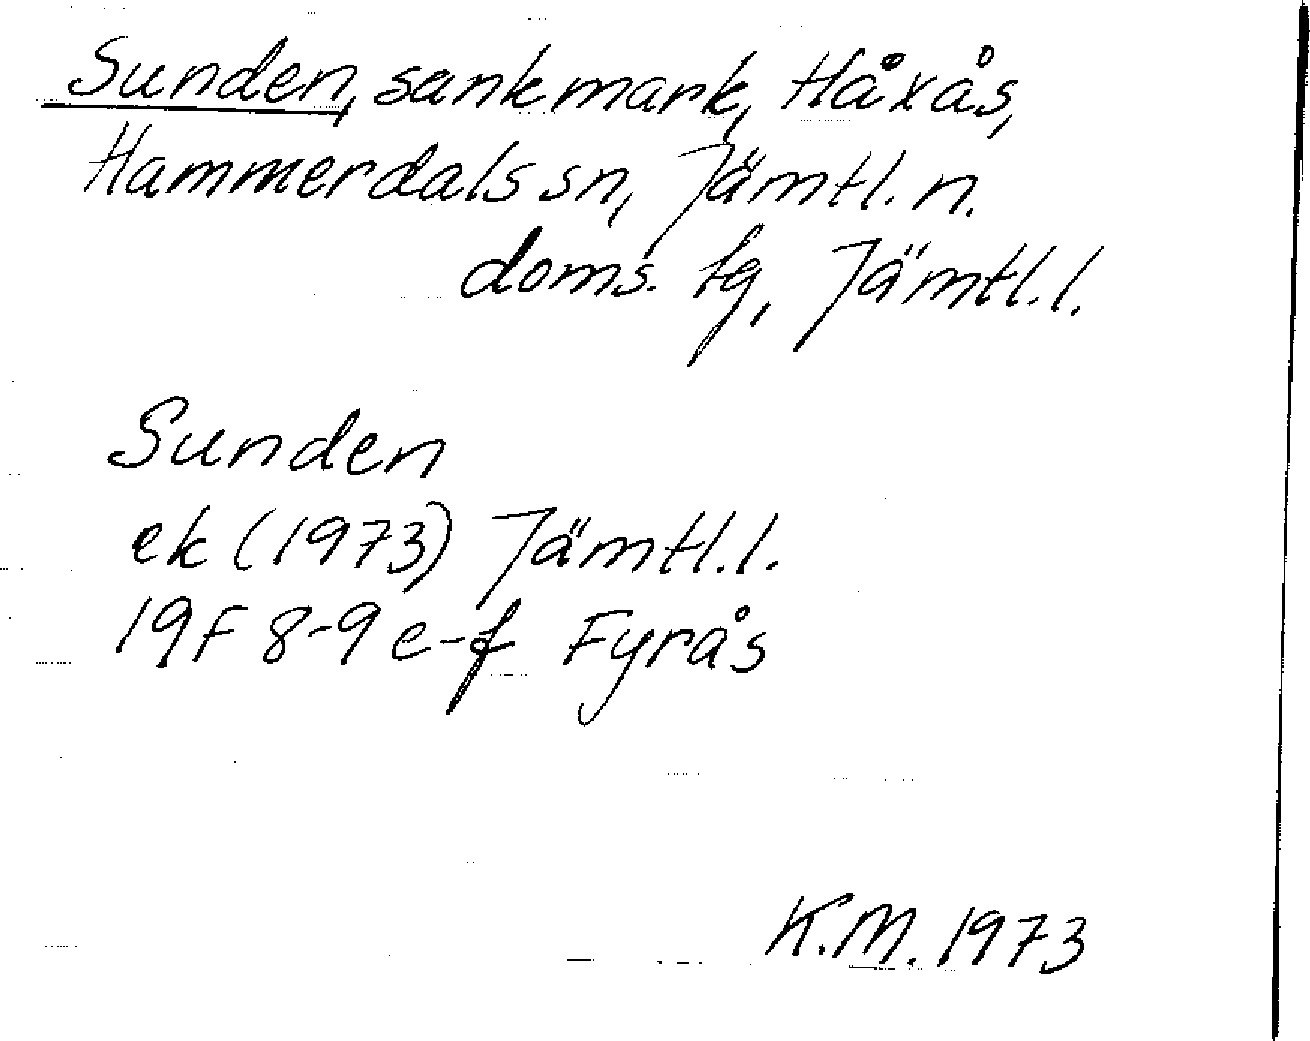 Sunden, sankmark, Håxås,
Hammerdals sn, Jämtl. n.
doms. tg, Jämtl. l.
Sunden
ek (1973) Jämtl. l.
19F 8-9 e-f Fyrås
K.M. 1973